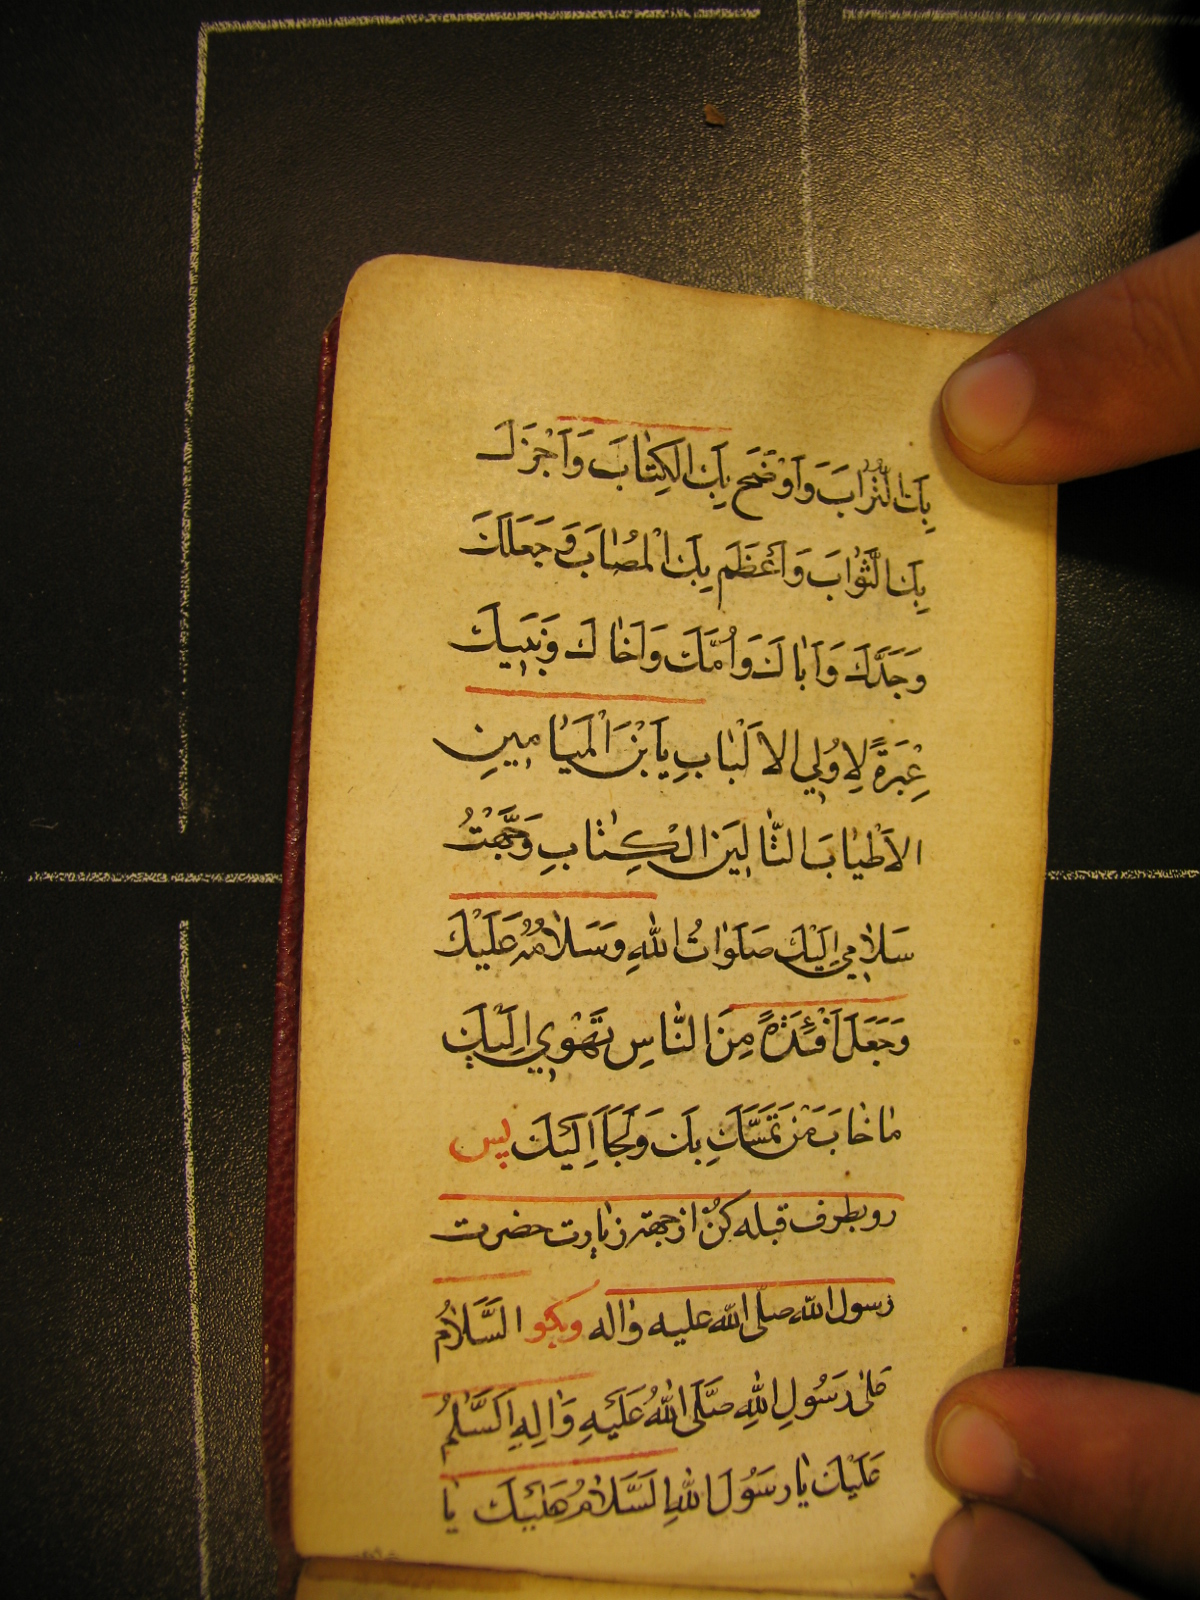 بِكَ التُّرابَ وَاَوْضَحَ بِكَ الكِتابَ وَاَجْزَلَ
بِكَ الثَّوابَ وَاَعْظَمَ بِكَ الْمُصابَ وَجَعَلَكَ
وَجَدَّكَ وَاَباكَ وَاُمَّكَ وَاَخاكَ وَبَنيكَ
عِبْرَةً لِاُولِي الاَلْبابِ يَابْنَ الْمَيامينِ
الاَطْيابَ التّالينَ الْكِتابِ وَجَّهْتُ
سَلامي اِلَيْكَ صَلَواتُ اللهِ وَسَلامُهُ عَلَيْكَ
وَجَعَلَ اَفْئِدَةً مِنَ النّاسِ تَهْوي اِلَيْكَ
ما خابَ مَنْ تَمَسَّكَ بِكَ وَلَجَأَ اِلَيْكَ پس
رو بطرف قبله كن از جهتر زيارت حضرت
رسول الله صلّى الله عليه واله وبكو السَّلامُ
عَلى رَسُولِ اللهِ صَلَّى اللهُ عَلَيهِ وَالِهِ اَلسَّلامُ
عَلَيْكَ يا رَسُولَ اللهِ اَلسَّلامُ عَلَيْكَ يا